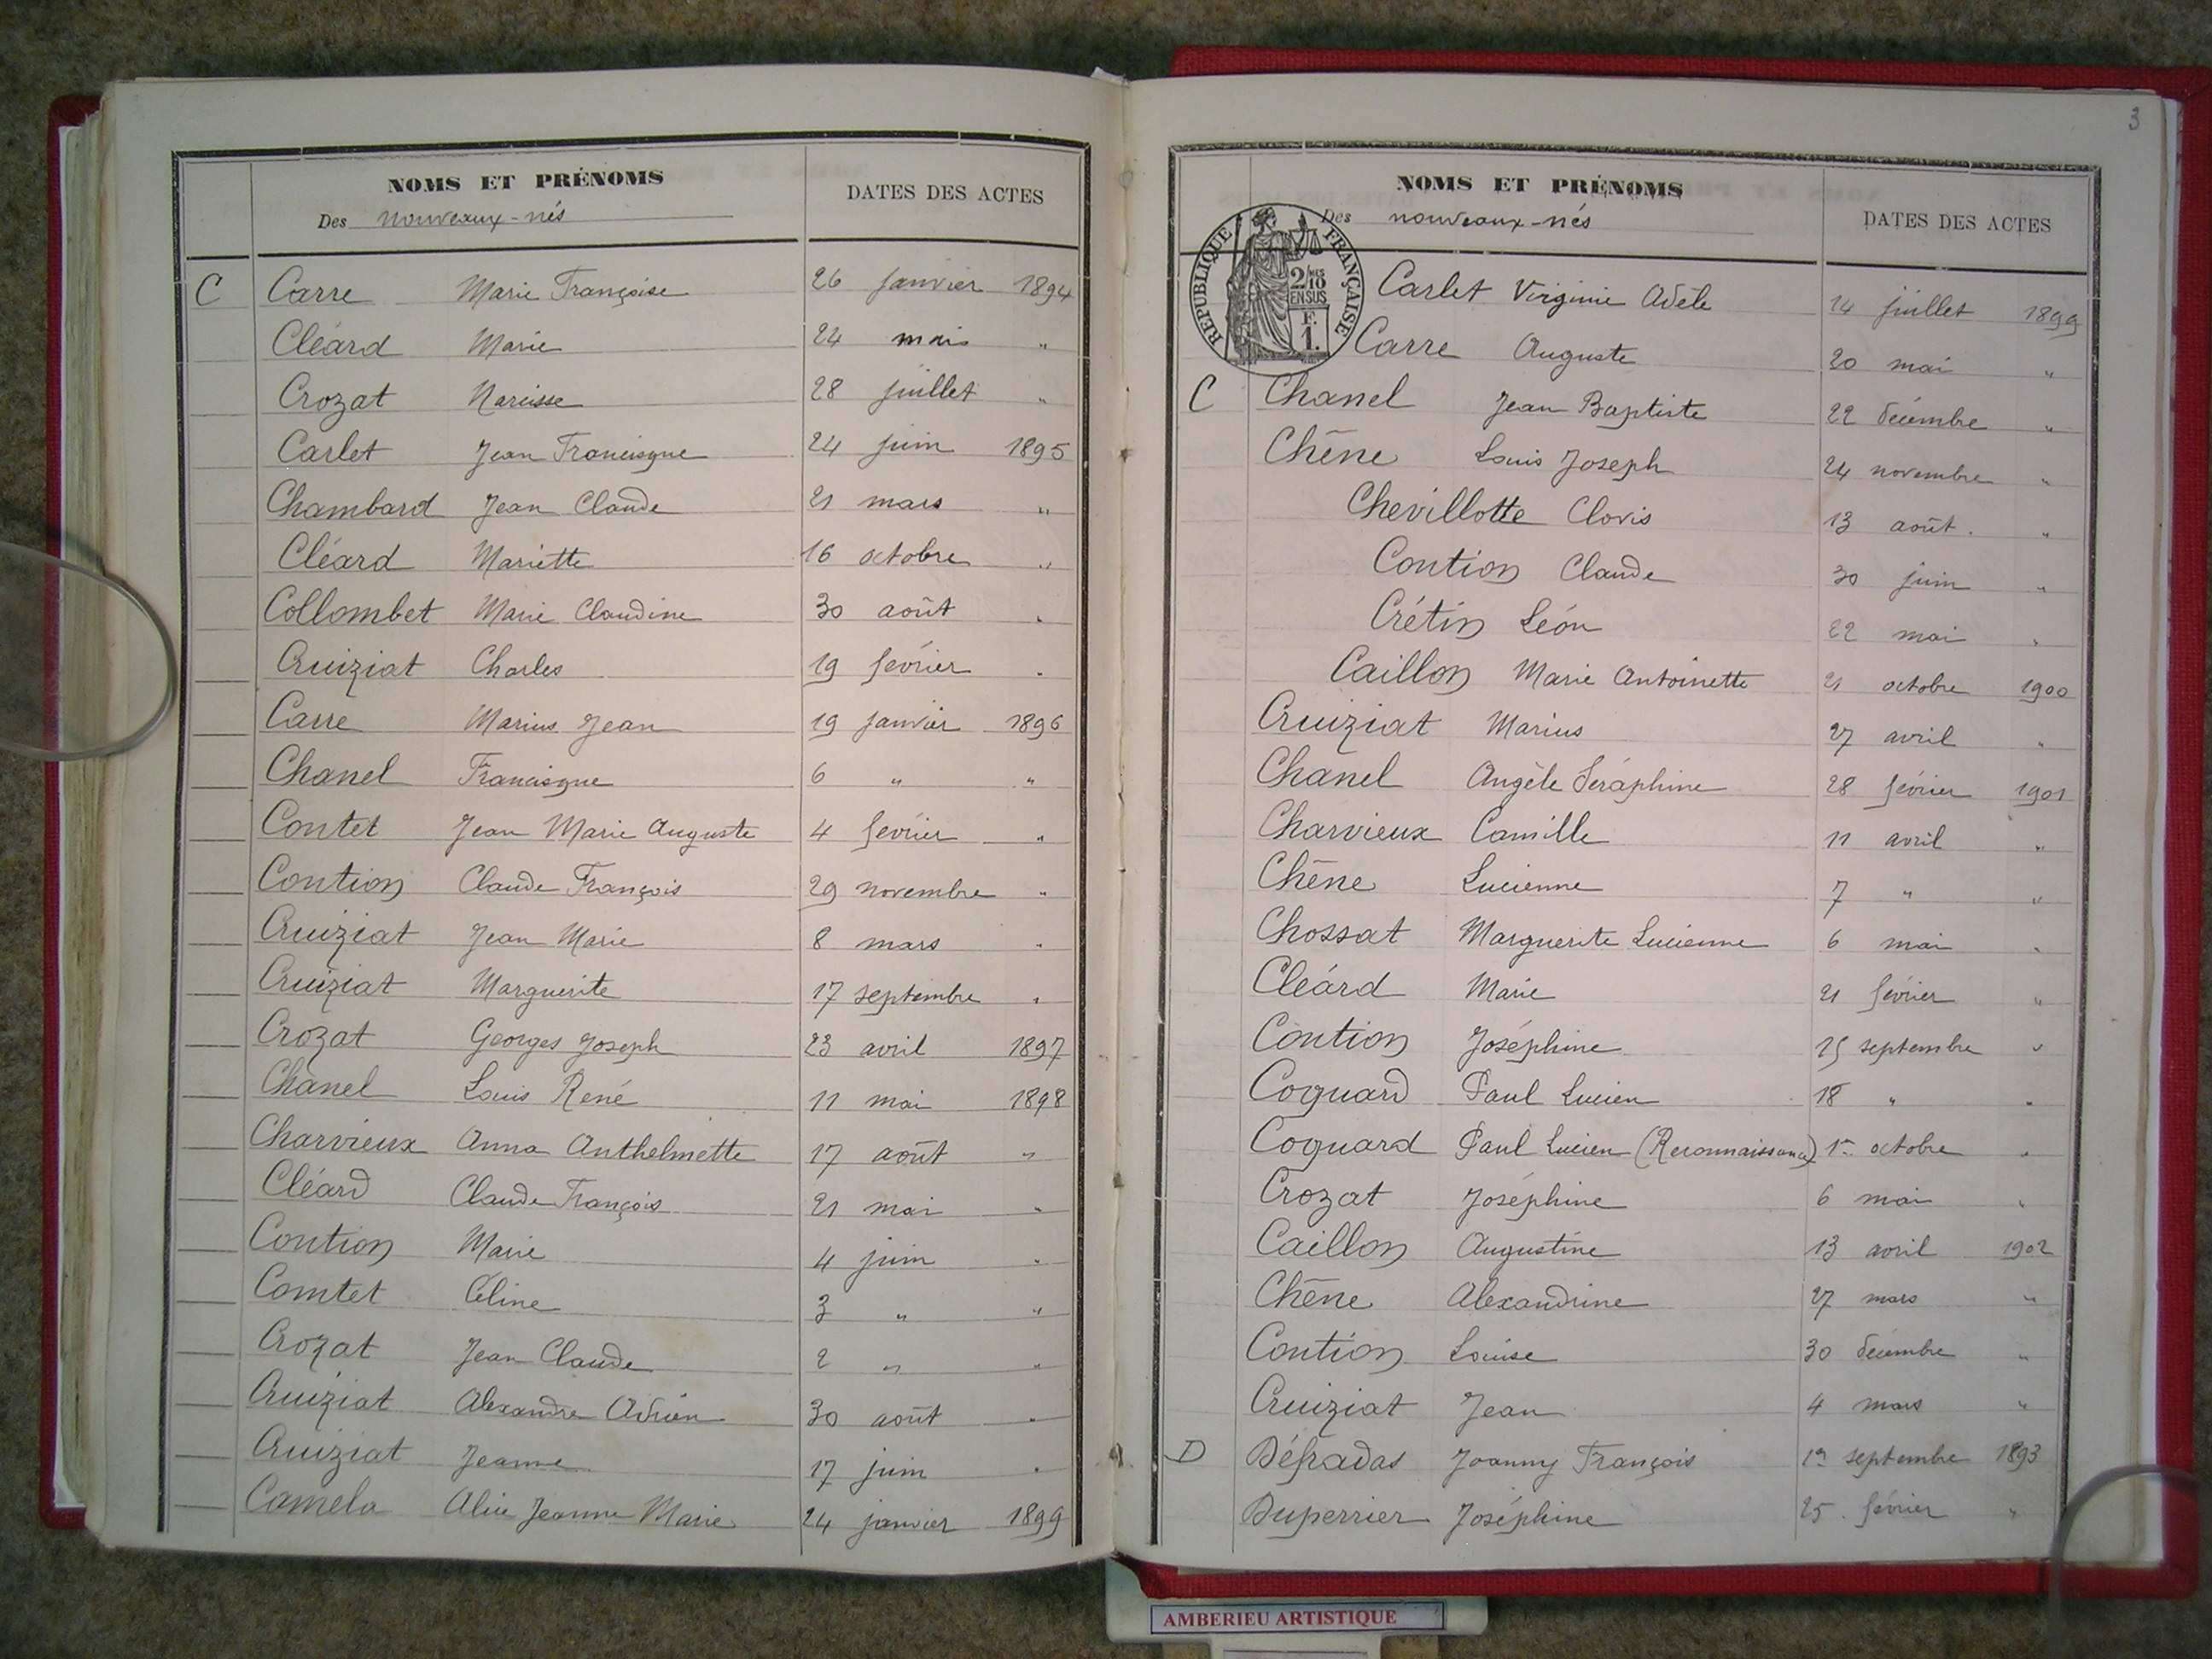 NOMS ET PRÉNOMS
Des nouveaux-nés
DATES DES ACTES
C Carre Marie Françoise 26 janvier 1894
Cléard Marie 24 mai "
Crozat Narcisse 28 juillet "
Carlet Jean Francisque 24 juin 1895
Chambard Jean Claude 21 mars "
Cléard Mariette 16 octobre "
Collombet Marie Claudine 30 août "
Cruiziat Charles 19 février "
Carre Marius Jean 19 janvier 1896
Chanel Francisque 6 " "
Contet Jean Marie Auguste 4 février "
Contion Claude François 29 novembre "
Cruiziat Jean Marie 8 mars "
Cruiziat Marguerite 17 septembre "
Crozat Georges Joseph 23 avril 1897
Chanel Louis René 11 mai 1898
Charvieux Anna Anthelmette 17 août "
Cléard Claude François 21 mai "
Contion Marie 4 juin "
Comtet Céline 3 " "
Crozat Jean Claude 2 " "
Cruiziat Alexandre Adrien 30 août "
Cruiziat Jeanne 17 juin "
Camela Alice Jeanne Marie 24 janvier 1899
3
NOMS ET PRÉNOMS
Des nouveaux-nés
DATES DES ACTES
RÉPUBLIQUE FRANÇAISE
2/10 MES
EN SUS
F.
1.
Carlet Virginie Adèle 14 juillet 1899
Carre Auguste 20 mai "
C Chanel Jean Baptiste 22 décembre "
Chêne Louis Joseph 24 novembre "
Chevillotte Clovis 13 août "
Contion Claude 30 juin "
Crétin Léon 22 mai "
Caillon Marie Antoinette 21 octobre 1900
Cruiziat Marius 27 avril "
Chanel Angèle Séraphine 28 février 1901
Charvieux Camille 11 avril "
Chêne Lucienne 7 " "
Chossat Marguerite Lucienne 6 mai "
Cléard Marie 21 février "
Contion Joséphine 15 septembre "
Coquard Paul Lucien 18 " "
Coquard Paul Lucien (Reconnaissance) 1er octobre "
Crozat Joséphine 6 mai "
Caillon Augustine 13 avril 1902
Chêne Alexandrine 27 mars "
Contion Louise 30 décembre "
Cruiziat Jean 4 mars "
D Défradas Joanny François septembre 1893
Duperrier Joséphine 25 février "
AMBERIEU ARTISTIQUE